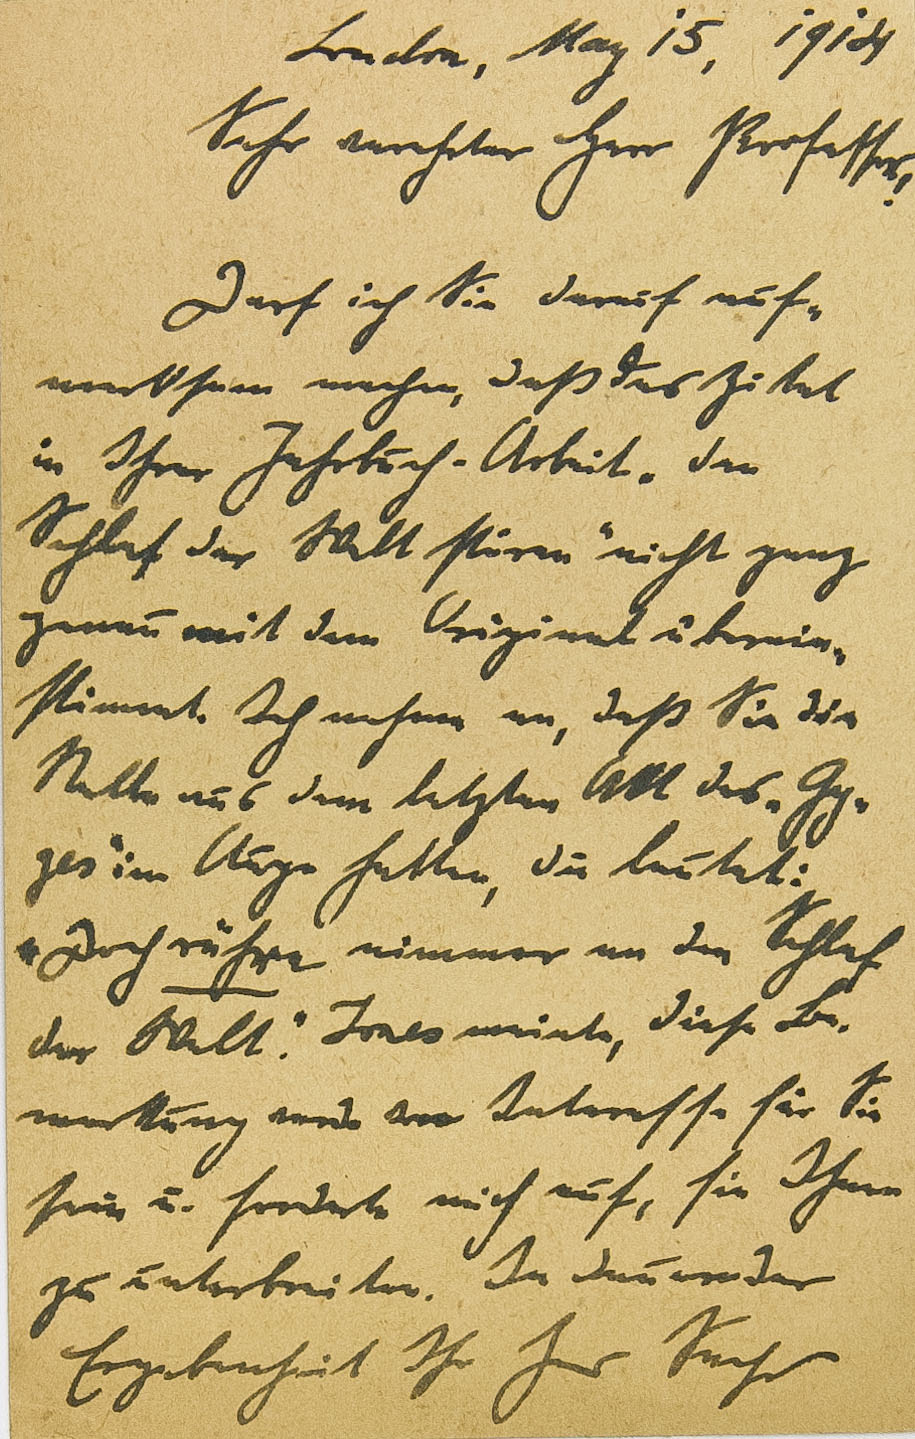 London, May 15, 1914
Sehr verehrter Herr Professor!
Darf ich Sie darauf auf„
merksam machen, daß das Zitat
in Ihrer Jahrbuch-Arbeit „den
Schlaf der Welt stören“ nicht ganz
genau mit dem Original überein„
stimmt. Ich nehme an, daß Sie die
Stelle aus dem letzten Akt des „Gy„
ges“ im Auge hatten, die lautet:
„Doch rühre nimmer an den Schlaf
der Welt“. Jones meinte, diese Be„
merkung werde von Interesse für Sie
sein u. forderte mich auf, sie Ihnen
zu unterbreiten. In dauernder
Ergebenheit Ihr Hans Sachs